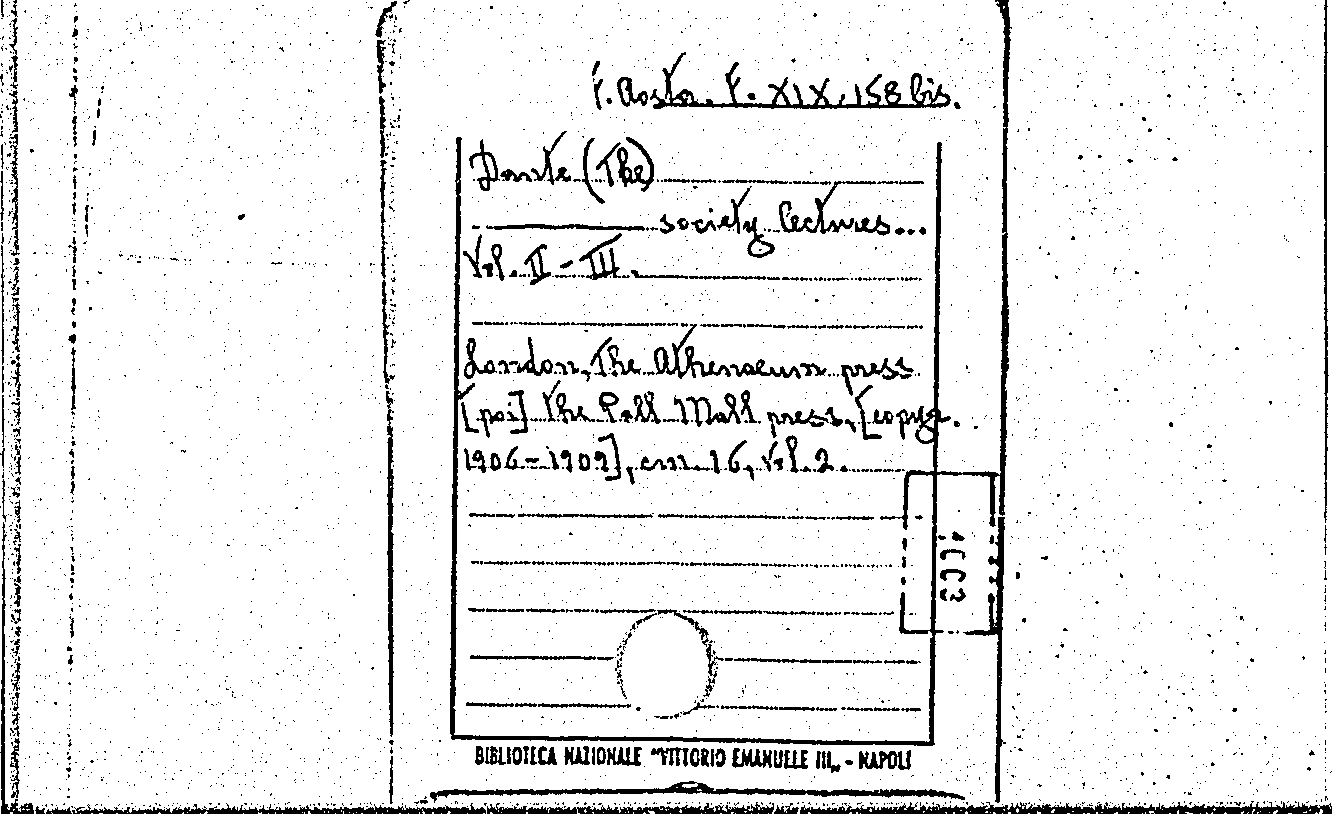 F. Aosta. F. XIX. 158 bis.
Dante (The)
society lectures...
Vol. II - III.
London, The Athenaeum press
[poi] The Pall Mall press, [copyr.
1906-1909], cm. 16, vol. 2.
BIBLIOTECA NAZIONALE "VITTORIO EMANUELE III„ - NAPOLI